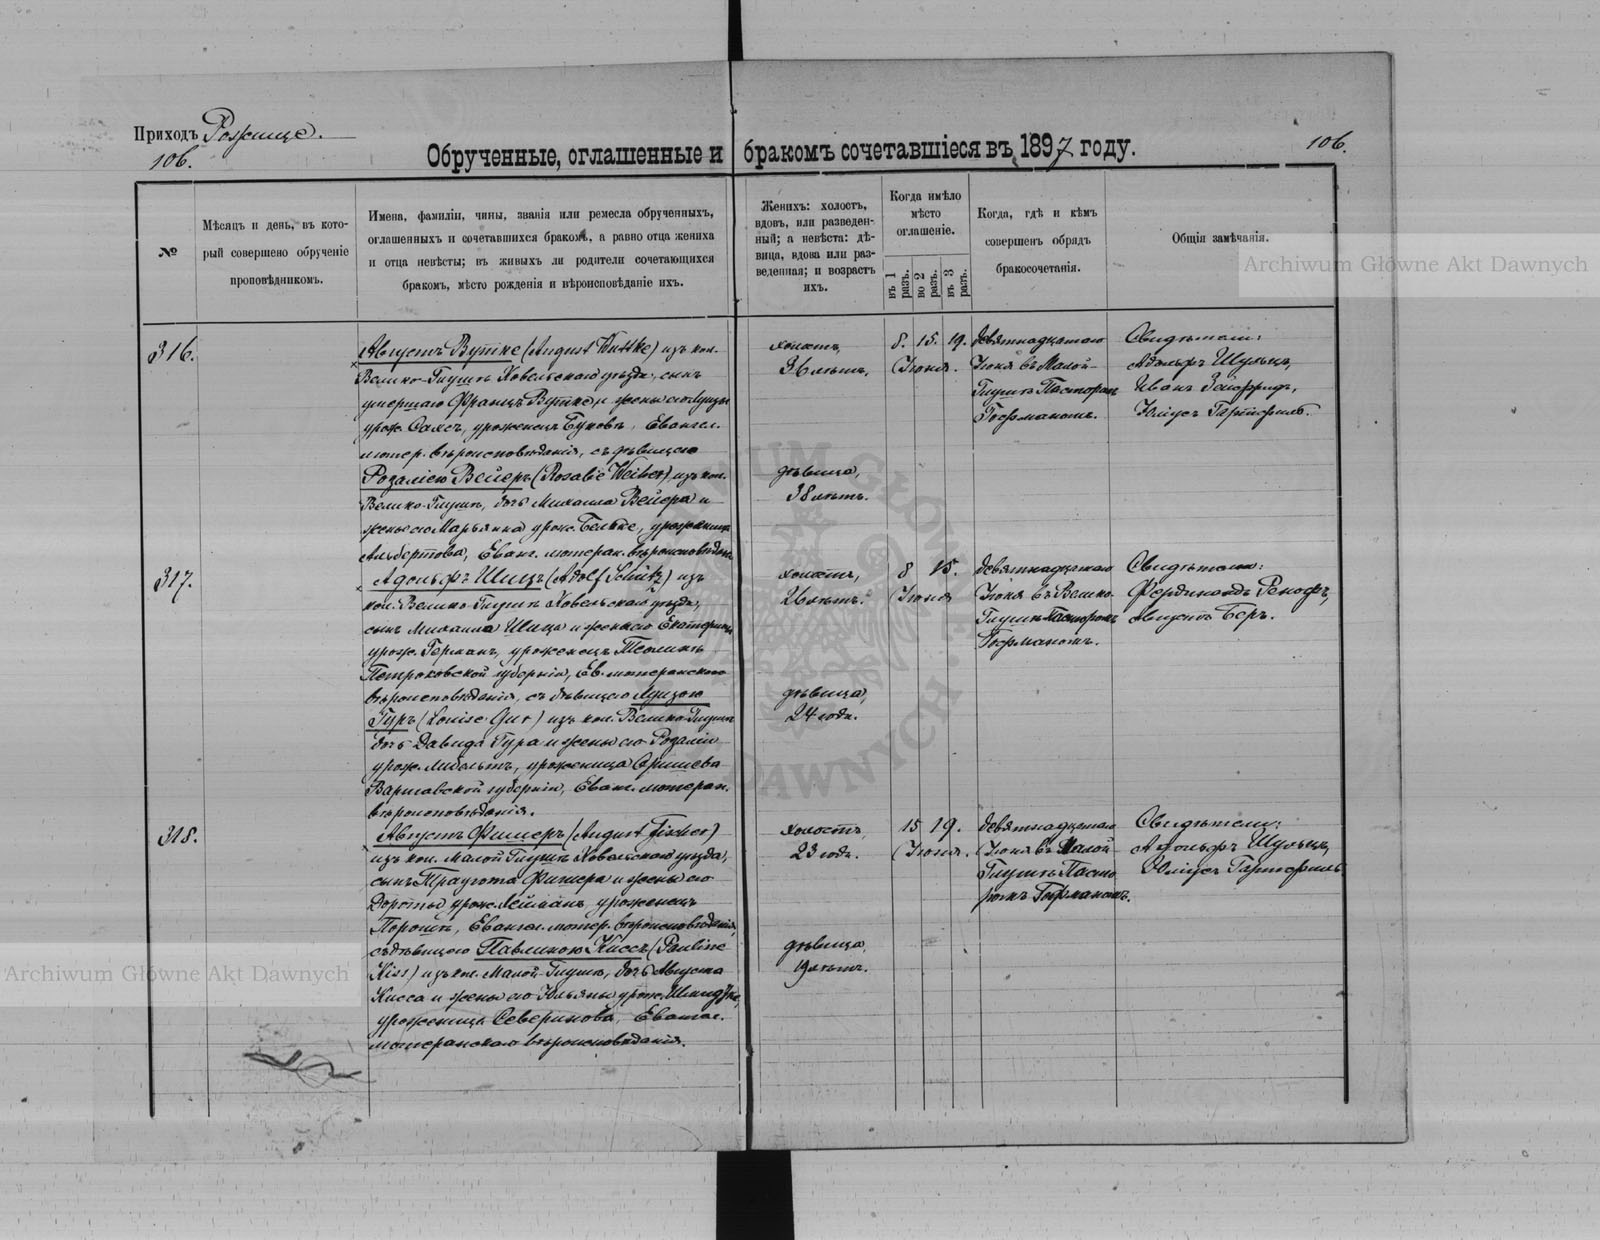 Приходъ Рожище.
106.
106.
Обрученные, оглашенные и бракомъ сочетавшіеся въ 1897 году.
№
Мѣсяцъ и день, въ кото-
рый совершено обрученіе
проповѣдникомъ.
Имена, фамиліи, чины, званія или ремесла обрученныхъ,
оглашенныхъ и сочетавшихся бракомъ, а равно отца жениха
и отца невѣсты; въ живыхъ ли родители сочетающихся
бракомъ, мѣсто рожденія и вѣроисповѣданіе ихъ.
Женихъ: холостъ,
вдовъ, или разведен-
ный; а невѣста: дѣ-
вица, вдова или раз-
веденная; и возрастъ
ихъ.
Когда имѣло
мѣсто
оглашеніе.
въ 1 разъ.
во 2 разъ.
въ 3 разъ.
Когда, гдѣ и кѣмъ
совершенъ обрядъ
бракосочетанія.
Общія замѣчанія.
Archiwum Główne Akt Dawnych
316.
Августъ Вутке (August Wuttke) изъ кол.
Велико-Глушъ Ковельскаго уѣзда, сынъ
умершаго Францъ Вутке, и жены его Луизы
урож. Саксъ, уроженецъ Буковъ, Евангел.
лютер. вѣроисповѣданія, съ дѣвицею
Розаліею Вейеръ (Rosalie Weiher) изъ кол.
Велико-Глушъ, дочь Михаила Вейера и
жены его Марьянна урож. Бельке, уроженица
Альбертова, Еванг. лютеран. вѣроисповѣдан.
холостъ,
36 лѣтъ.
дѣвица,
38 лѣтъ.
8. 15. 19.
Іюня.
девятнадцатаго
Іюня въ Малой-
Глушѣ Пасторомъ
Гофманомъ.
Свидѣтели:
Адольфъ Шульцъ,
Иванъ Зейфридъ,
Юліусъ Гартфиль.
317.
Адольфъ Шицъ (Adolf Schütz) изъ
кол. Велико-Глушъ Ковельскаго уѣзда,
сынъ Михаила Шица и жены его Екатерины
урож. Германъ, уроженецъ
Петроковской губерніи, Ев. лютеранскаго
вѣроисповѣданія, съ дѣвицею Луизою
Гуръ (Louise Gur) изъ кол. Велико-Глушъ
дочь Давида Гура и жены его Розаліи
урож. уроженица
Варшавской губерніи, Еванг. лютеран.
вѣроисповѣданія.
холостъ,
26 лѣтъ.
дѣвица,
24 года.
8 15.
Іюня
девятнадцатаго
Іюня въ Велико-
Глушѣ Пасторомъ
Гофманомъ.
Свидѣтели:
Фердинандъ
Августъ Беръ.
318.
Августъ Фишеръ (August Fischer)
изъ кол. Малой Глушъ Ковельскаго уѣзда,
сынъ Траугота Фишера и жены его
Доротьи урож. Лейманъ, уроженецъ
Евангел. лютер. вѣроисповѣданія,
съ дѣвицею Павлиною Киссъ (Pauline
Kiss) изъ кол. Малой-Глушъ, дочь Августа
Кисса и жены его Юльяны урож. Шмидтке,
уроженица Северинова, Евангел.
лютеранскаго вѣроисповѣданія.
холостъ,
23 года.
дѣвица,
19 лѣтъ.
15 19.
Іюня.
девятнадцатаго
Іюня въ Малой
Глушѣ Пасто-
ромъ Гофманомъ.
Свидѣтели:
Адольфъ Шульцъ,
Юліусъ Гартфиль
Archiwum Główne Akt Dawnych